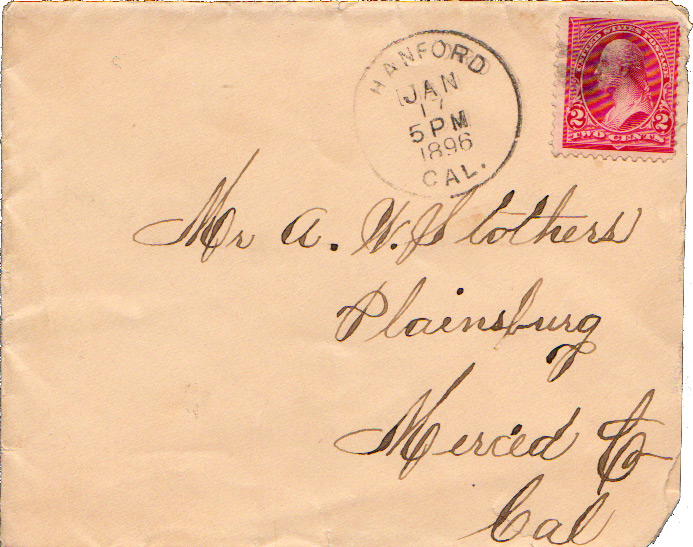 HANFORD
JAN
17
5 PM
1896
CAL.
UNITED STATES POSTAGE
2 2
TWO CENTS
Mr A. W. Slothers
Plainsburg
Merced Co
Cal